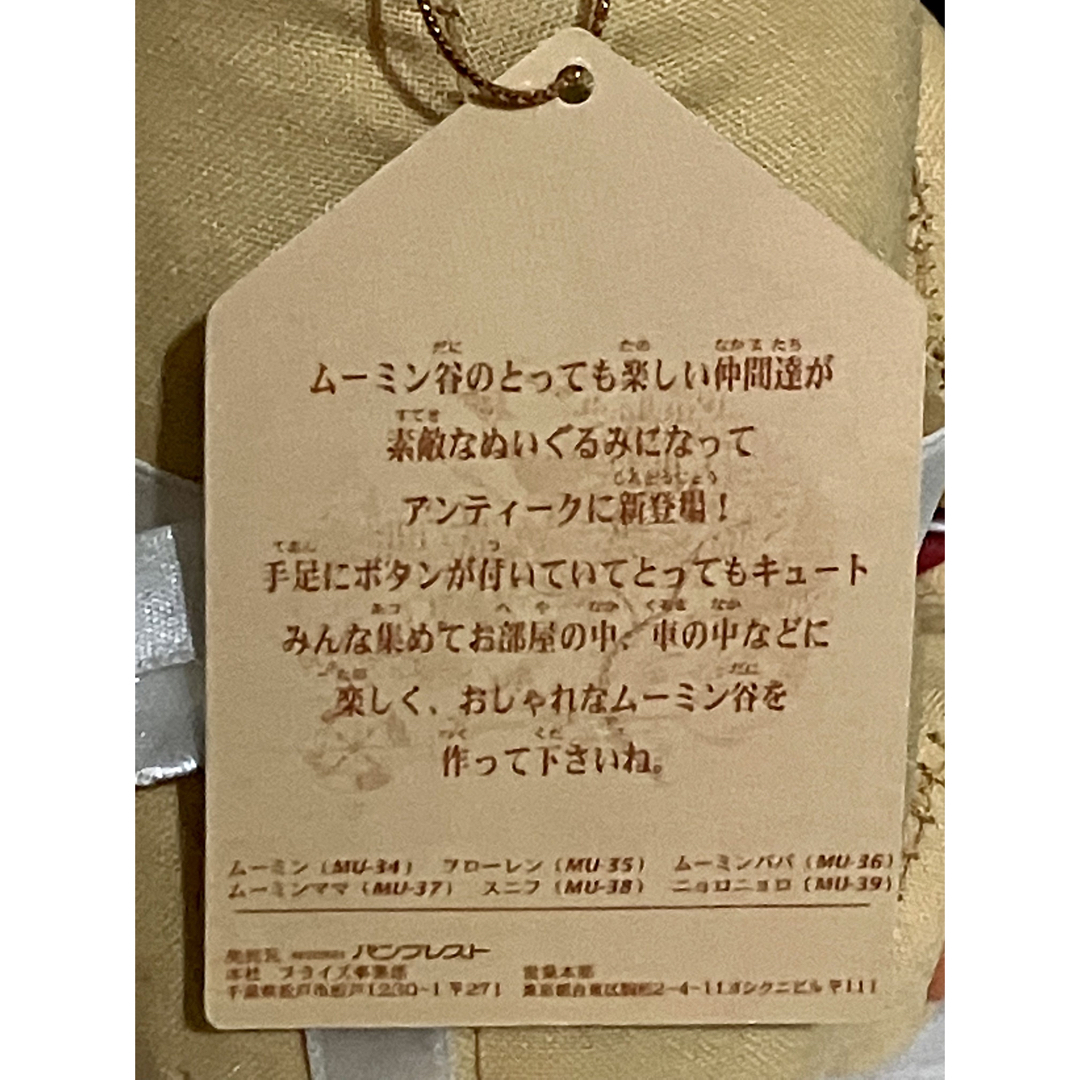 ムーミン谷のとっても楽しい仲間達が
素敵なぬいぐるみになって
アンティークに新登場！
手足にボタンが付いていてとってもキュート
みんな集めてお部屋の中、車の中などに
楽しく、おしゃれなムーミン谷を
作って下さいね。
ムーミン（MU-34） フローレン（MU-35） ムーミンパパ（MU-36）
ムーミンママ（MU-37） スニフ（MU-38） ニョロニョロ（MU-39）
バンプレスト
本社 プライズ事業部 営業本部
千葉県松戸市松戸1230-1 〒271 東京都台東区駒形2-4-11ヨシクニビル 〒111